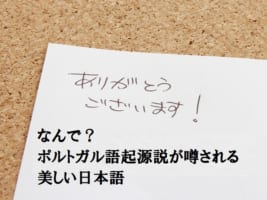 ありがとう
ございます!
なんで？
ポルトガル語起源説が噂される
美しい日本語